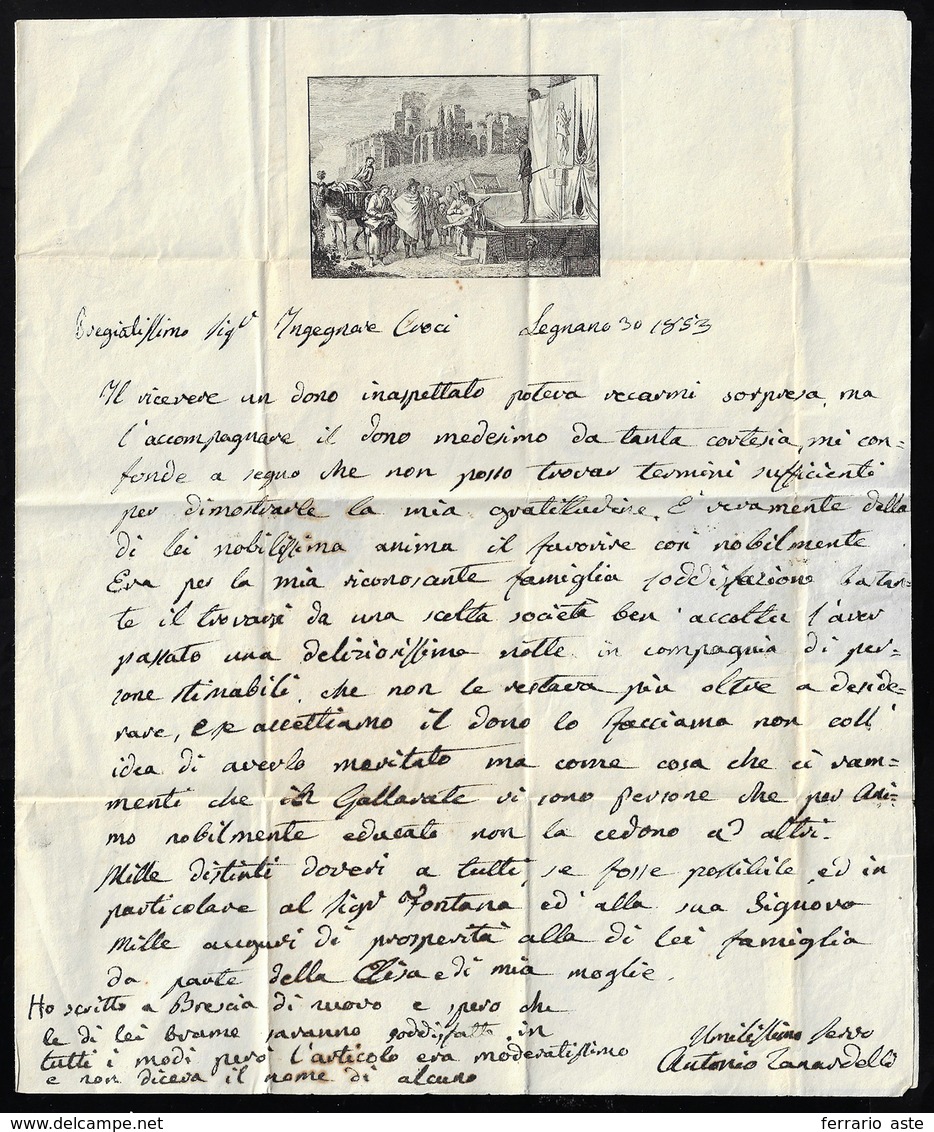 Pregiatissimo Sigr Ingegnare Croci Legnano 30 1853
Il ricevere un dono inaspettato poteva recarmi sorpresa, ma
l'accompagnare il dono medesimo da tanta cortesia, mi con-
fonde a segno che non posso trovar termini sufficienti
per dimostrarle la mia gratitudine. È veramente della
di lei nobilissima anima il favorire così nobilmente
Era per la mia riconoscante famiglia soddisfazione bastan-
te il trovarsi da una scelta società ben accolta l'aver
passato una deliziosissima notte in compagnia di per-
sone stimabili, che non le restava più oltre a deside-
rare, e se accettiamo il dono lo facciamo non coll'
idea di averlo meritato ma come cosa che ci ram-
menti che in Gallarate vi sono persone che per ani-
mo nobilmente educato non la cedono ad altri.
Mille distinti doveri a tutti, se fosse possibile, ed in
particolare al Sigr Fontana ed alla sua Signora
Mille auguri di prosperità alla di lei famiglia
da parte della Elisa e di mia moglie.
Ho scritto a Brescia di nuovo e spero che
le di lei brame saranno soddisfatte in
tutti i modi però l'articolo era moderatissimo
e non diceva il nome di alcuno
Umilissimo Servo
Antonio Zanardelli
ferrario aste